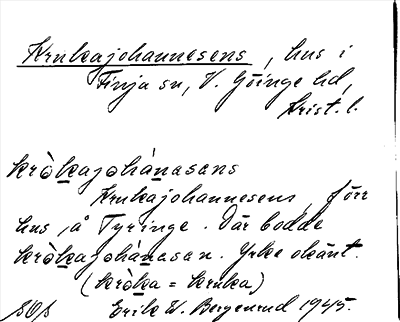 Krukajohannesens, hus i
Finja sn, V. Göinge hd,
Krist. l.
kròkajohánasans
Krukajohannesens, förr
hus å Tyringe. Där bodde
kròkajohànasan. Yrke okänt.
(kròka = kruka)
Erik W. Bergenrud 1945.